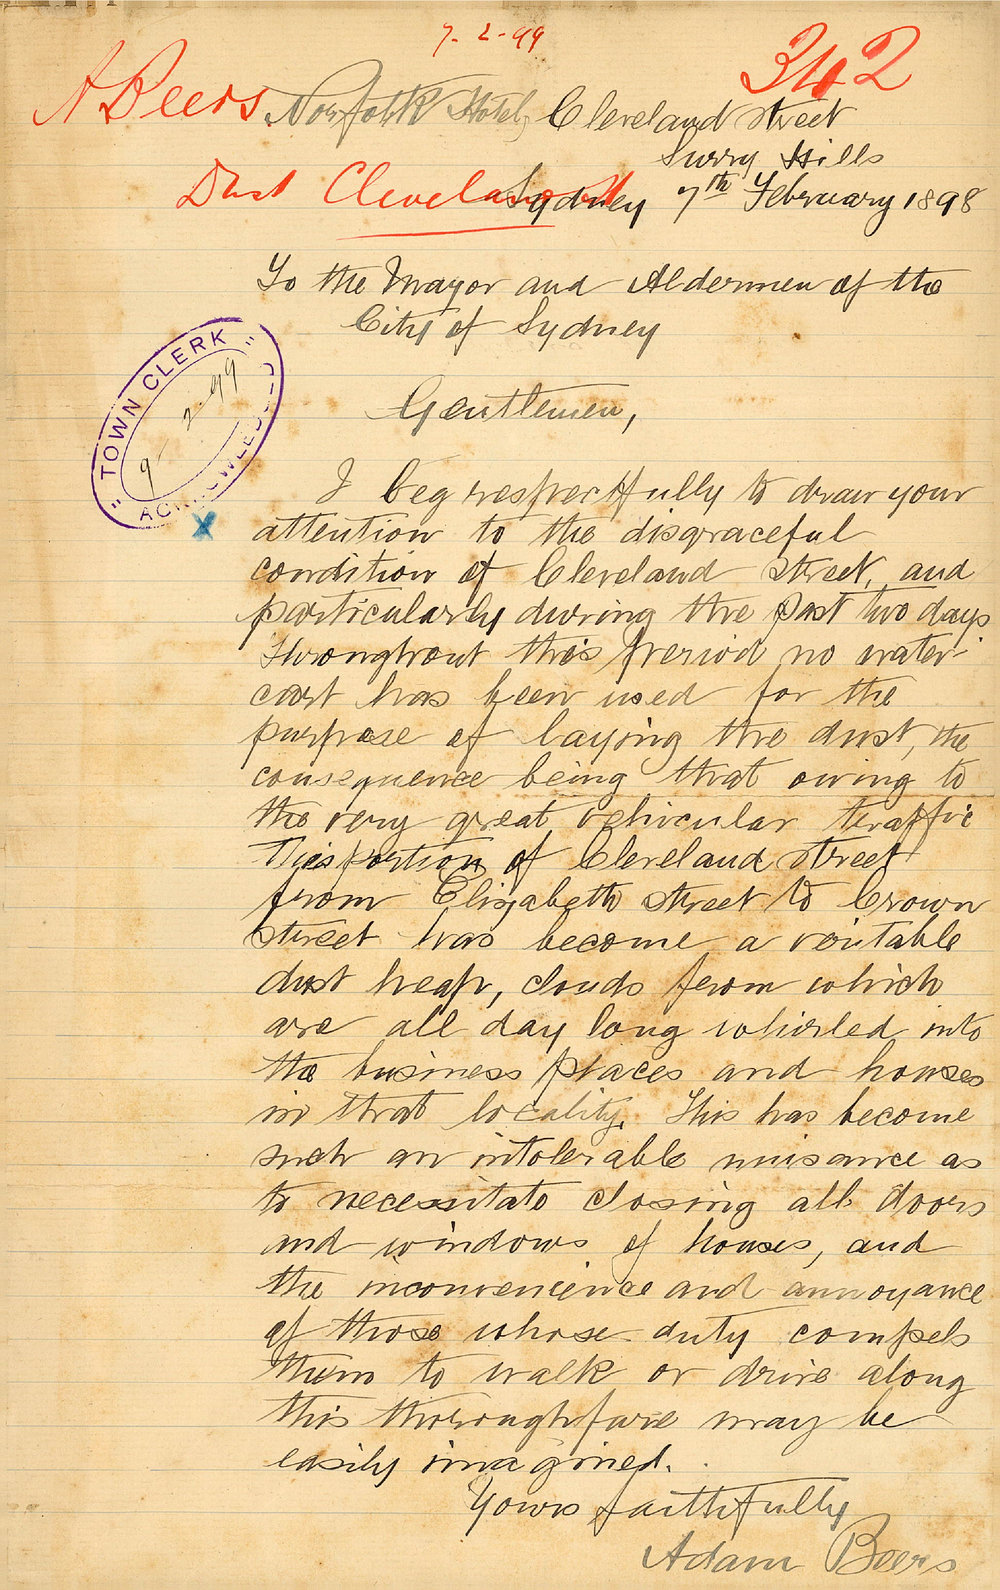 7-2-99
342
A Beers
Norfolk Hotel, Cleveland Street
Surry Hills
Dust Cleveland St
Sydney 7th February 1898
To the Mayor and Aldermen of the
City of Sydney
"TOWN CLERK"
9-2-99
ACKNOWLEDGED
Gentlemen,
I beg respectfully to draw your
attention to the disgraceful
condition of Cleveland Street, and
particularly during the past two days
Throughout this period no water-
cart has been used for the
purpose of laying the dust, the
consequence being that owing to
the very great vehicular traffic
This portion of Cleveland Street
from Elizabeth Street to Crown
Street has become a veritable
dust heap, clouds from which
are all day long whirled into
the business places and houses
in that locality. This has become
such an intolerable nuisance as
to necessitate closing all doors
and windows of houses, and
the inconvenience and annoyance
of those whose duty compels
them to walk or drive along
this thoroughfare may be
easily imagined.
Yours faithfully
Adam Beers